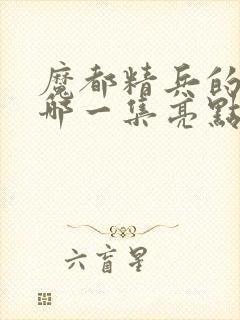 魔都精兵的
哪一集亮點
六盲星